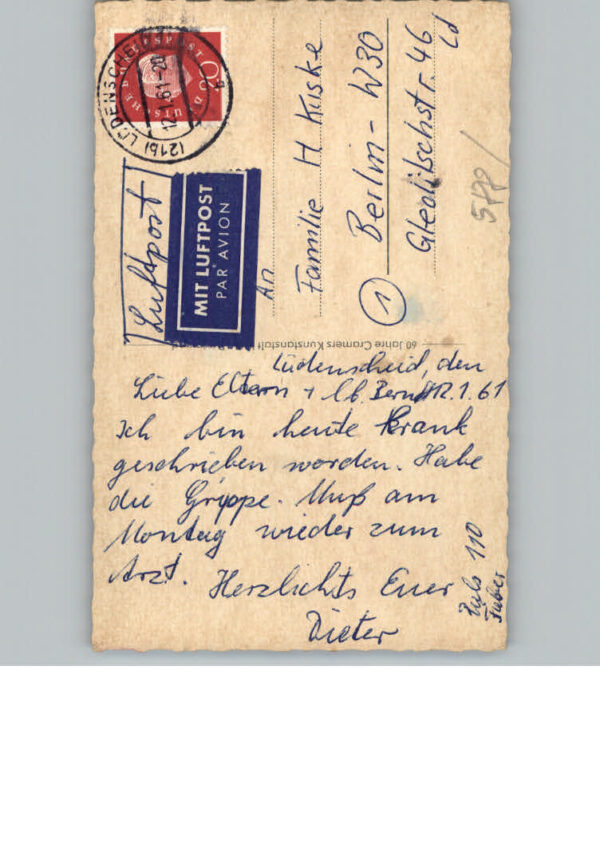 Lüdenscheid, den
12.1.61
Liebe Eltern + lb. Bernd
Ich bin heute krank
geschrieben worden. Habe
die Grippe. Muß am
Montag wieder zum
Arzt. Herzlichts Euer
Dieter
Puls 110
Luftpost
MIT LUFTPOST
PAR AVION
An
Familie H. Kiske
1 Berlin - W30
Gleditschstr. 46
60 Jahre Cramers Kunstanstalt
(21b) LÜDENSCHEID
DEUTSCHE BUNDESPOST
5178/